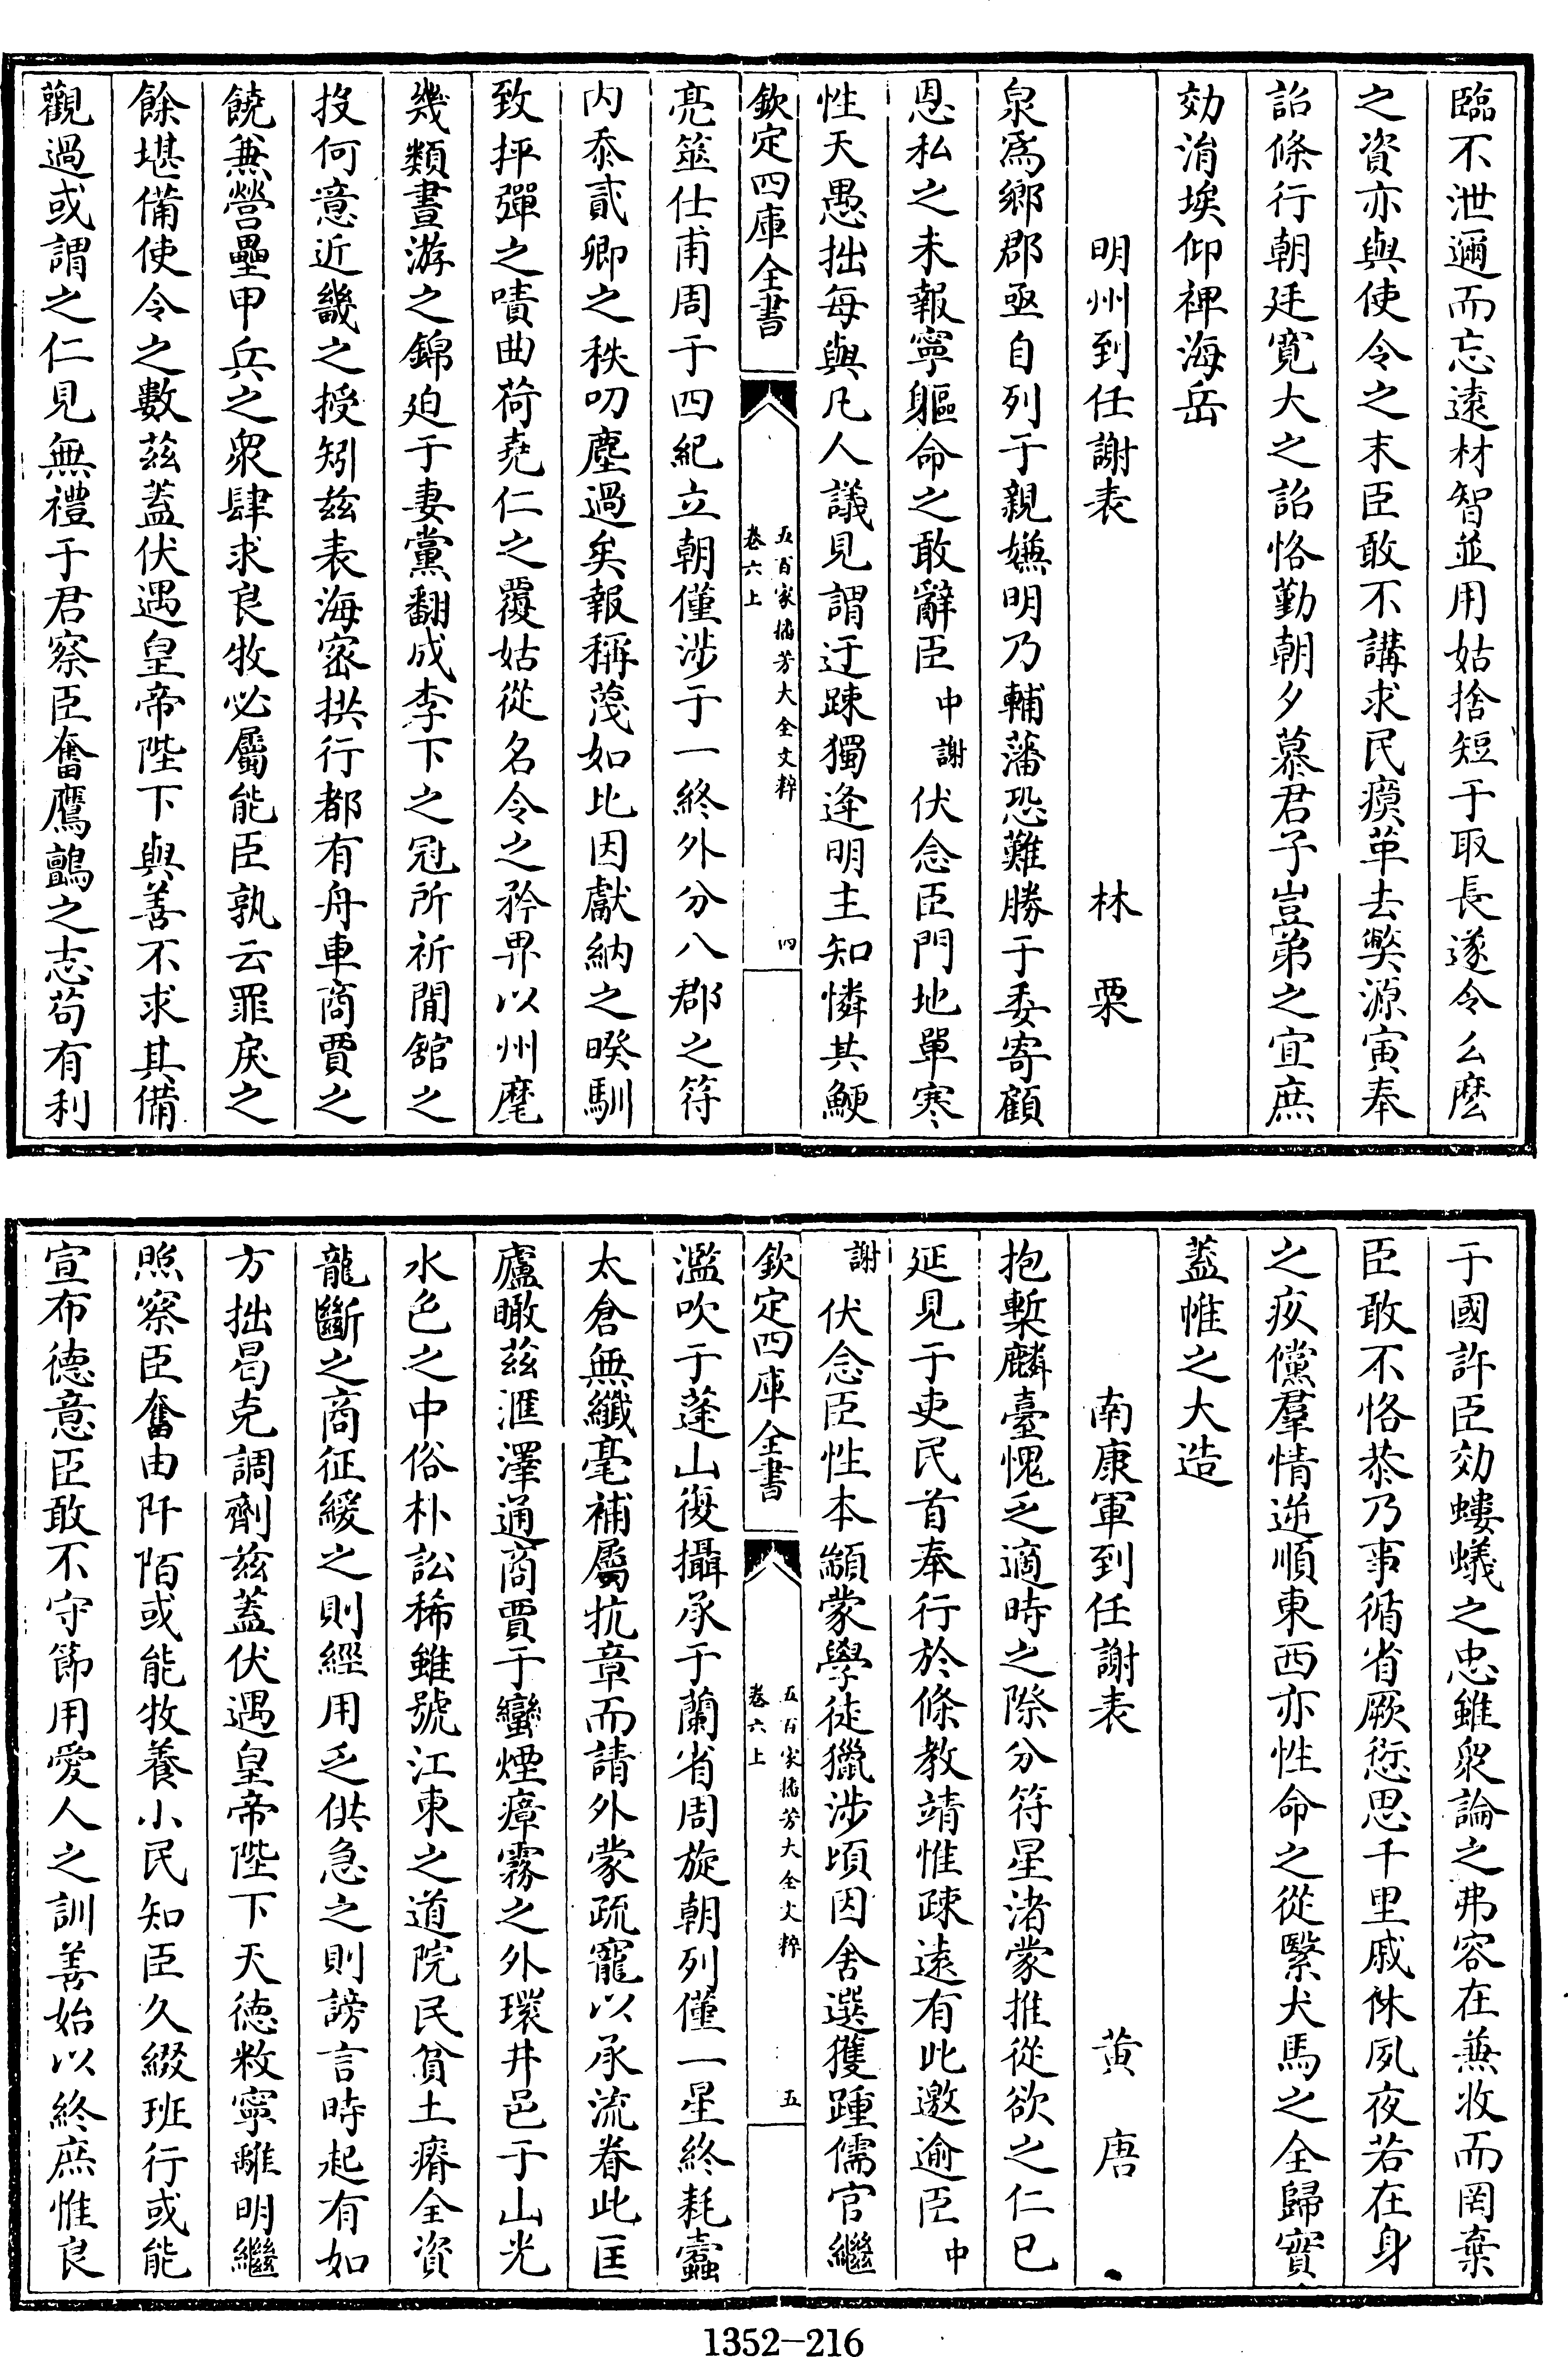 臨不泄邇而忘遠材智並用姑捨短于取長遂令么麼
之資亦與使令之末臣敢不講求民瘼革去獘源寅奉
詔條行朝廷寛大之詔恪勤朝夕慕君子豈弟之宜庶
効涓埃仰裨海岳
明州到任謝表　林栗
泉為鄉郡亟自列于親嫌明乃輔藩恐難勝于委寄顧
恩私之未報寧軀命之敢辭臣中謝伏念臣門地單寒
性天愚拙每與凡人議見謂迂疎獨逢明主知憐其鯁
欽定四庫全書　五百家播芳大全文粹　卷六上　四
亮筮仕甫周于四紀立朝僅涉于一終外分八郡之符
内忝貳卿之秩叨塵過矣報稱蔑如比因獻納之暌馴
致抨彈之嘖曲荷堯仁之覆姑從名令之矜畀以州麾
幾類晝游之錦廹于妻黨翻成李下之冠所祈閒舘之
投何意近畿之授矧兹表海宻拱行都有舟車商賈之
饒兼營壘甲兵之衆肆求良牧必屬能臣孰云罪戾之
餘堪備使令之數兹蓋伏遇皇帝陛下與善不求其備
觀過或謂之仁見無禮于君察臣奮鷹鸇之志苟有利
于國許臣効螻蟻之忠雖衆論之弗容在兼收而罔棄
臣敢不恪恭乃事循省厥愆思千里戚休夙夜若在身
之疢儻羣情逆順東西亦性命之從繄犬馬之全歸實
蓋帷之大造
南康軍到任謝表　黄唐
抱槧麟臺愧乏適時之際分符星渚蒙推從欲之仁已
延見于吏民首奉行於條教靖惟疎遠有此邀逾臣中
謝伏念臣性本顓蒙學徒獵涉頃因舍選獲踵儒官繼
欽定四庫全書　五百家播芳大全文粹　卷六上　五
濫吹于蓬山復攝承于蘭省周旋朝列僅一星終耗蠧
太倉無纎毫補屬抗章而請外蒙疏寵以承流眷此匡
廬瞰兹滙澤通商賈于蠻煙瘴霧之外環井邑于山光
水色之中俗朴訟稀雖號江東之道院民貧土瘠全資
龍斷之商征緩之則經用乏供急之則謗言時起有如
方拙曷克調劑兹蓋伏遇皇帝陛下天德敉寧離明繼
照察臣奮由阡陌或能牧養小民知臣久綴班行或能
宣布德意臣敢不守節用愛人之訓善始以終庶惟良
1352-216